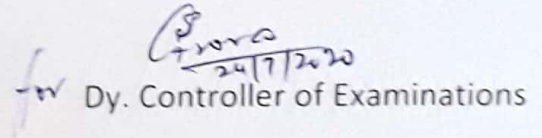 24/7/2020
for Dy. Controller of Examinations